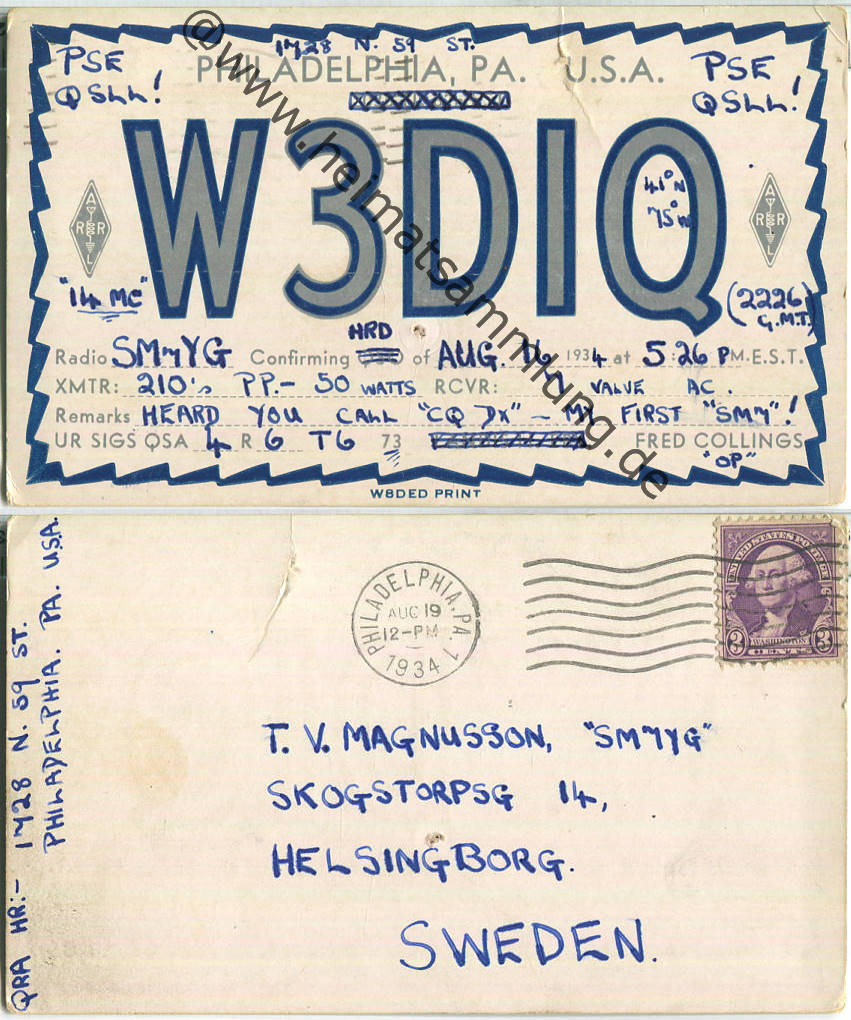 1728 N. 59 ST.
PHILADELPHIA, PA. U.S.A.
PSE QSLL!
PSE QSLL!
W3DIQ
41° N
75° W
A R R L
A R R L
"14 MC"
(2226 G.M.T.)
HRD
Radio SM7YG Confirming of AUG. 16 1934 at 5:26 P M. E.S.T.
XMTR: 210's PP.- 50 WATTS RCVR: VALVE AC.
Remarks HEARD YOU CALL "CQ DX" - MY FIRST "SM7"!
UR SIGS QSA 4 R 6 T6 73 FRED COLLINGS
"OP"
W8DED PRINT
@www.heimatsammlung.de
QRA HR:- 1728 N. 59 ST.
PHILADELPHIA. PA. U.S.A.
PHILADELPHIA, PA. 1
AUG 19
12-PM
1934
UNITED STATES POSTAGE
WASHINGTON
3 CENTS 3
T. V. MAGNUSSON, "SM7YG"
SKOGSTORPSG 14,
HELSINGBORG.
SWEDEN.